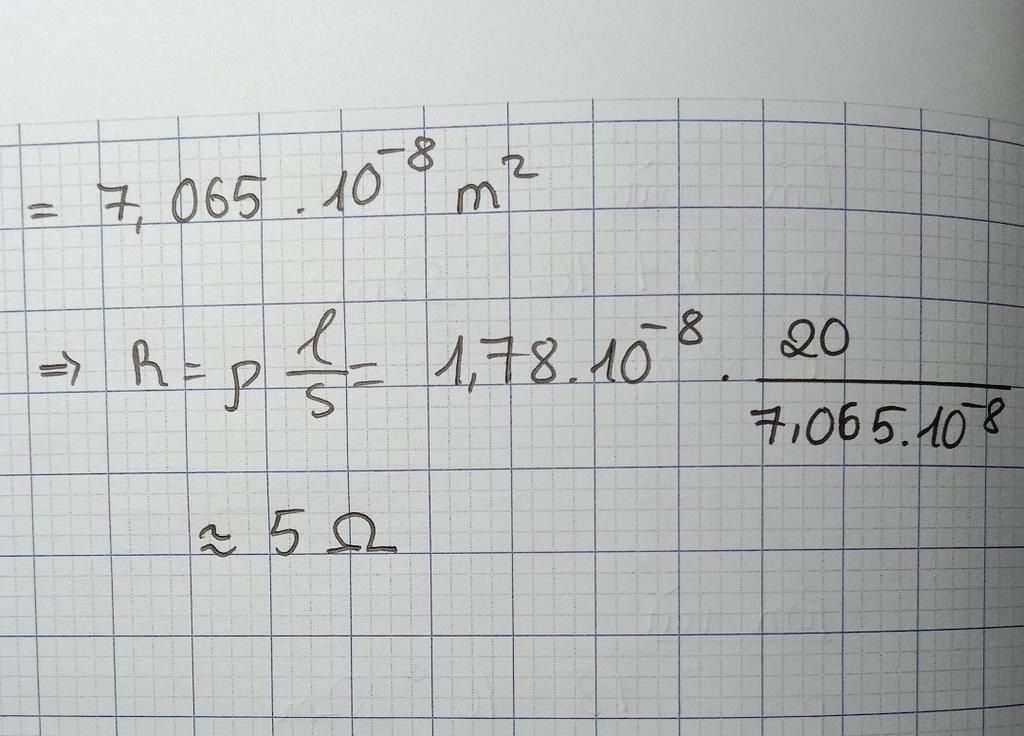 = 7,065 . 10⁻⁸ m²
⇒ R = ρ l/s = 1,78 . 10⁻⁸ . 20/7,065 . 10⁻⁸
≈ 5 Ω